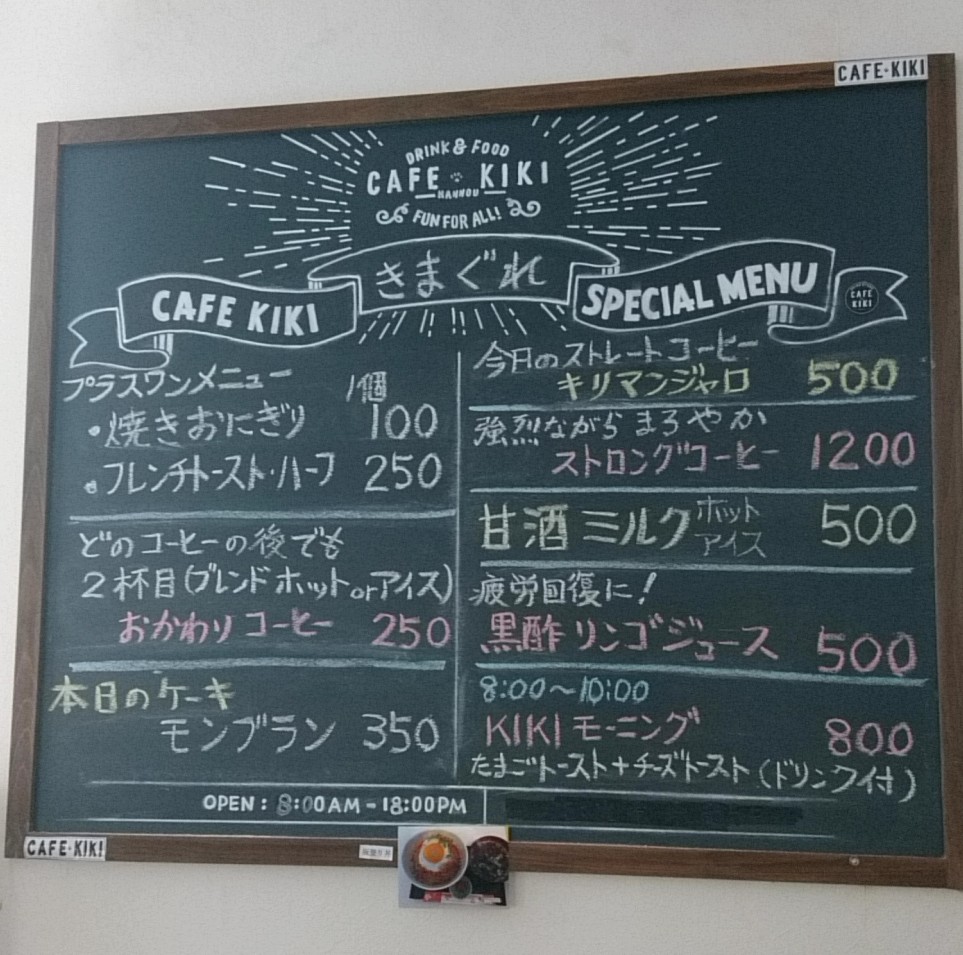 CAFE·KIKI
DRINK & FOOD
CAFE KIKI
HANNOU
FUN FOR ALL!
きまぐれ
CAFE KIKI
SPECIAL MENU
CAFE KIKI
プラスワンメニュー 1個
・焼きおにぎり 100
・フレンチトースト・ハーフ 250
どのコーヒーの後でも
2杯目(ブレンドホットorアイス)
おかわりコーヒー 250
本日のケーキ
モンブラン 350
今日のストレートコーヒー
キリマンジャロ 500
強烈ながらまろやか
ストロングコーヒー 1200
甘酒ミルク ホット アイス 500
疲労回復に!
黒酢リンゴジュース 500
8:00〜10:00
KIKIモーニング 800
たまごトースト+チーズトースト(ドリンク付)
OPEN: 8:00AM-18:00PM
CAFE·KIKI